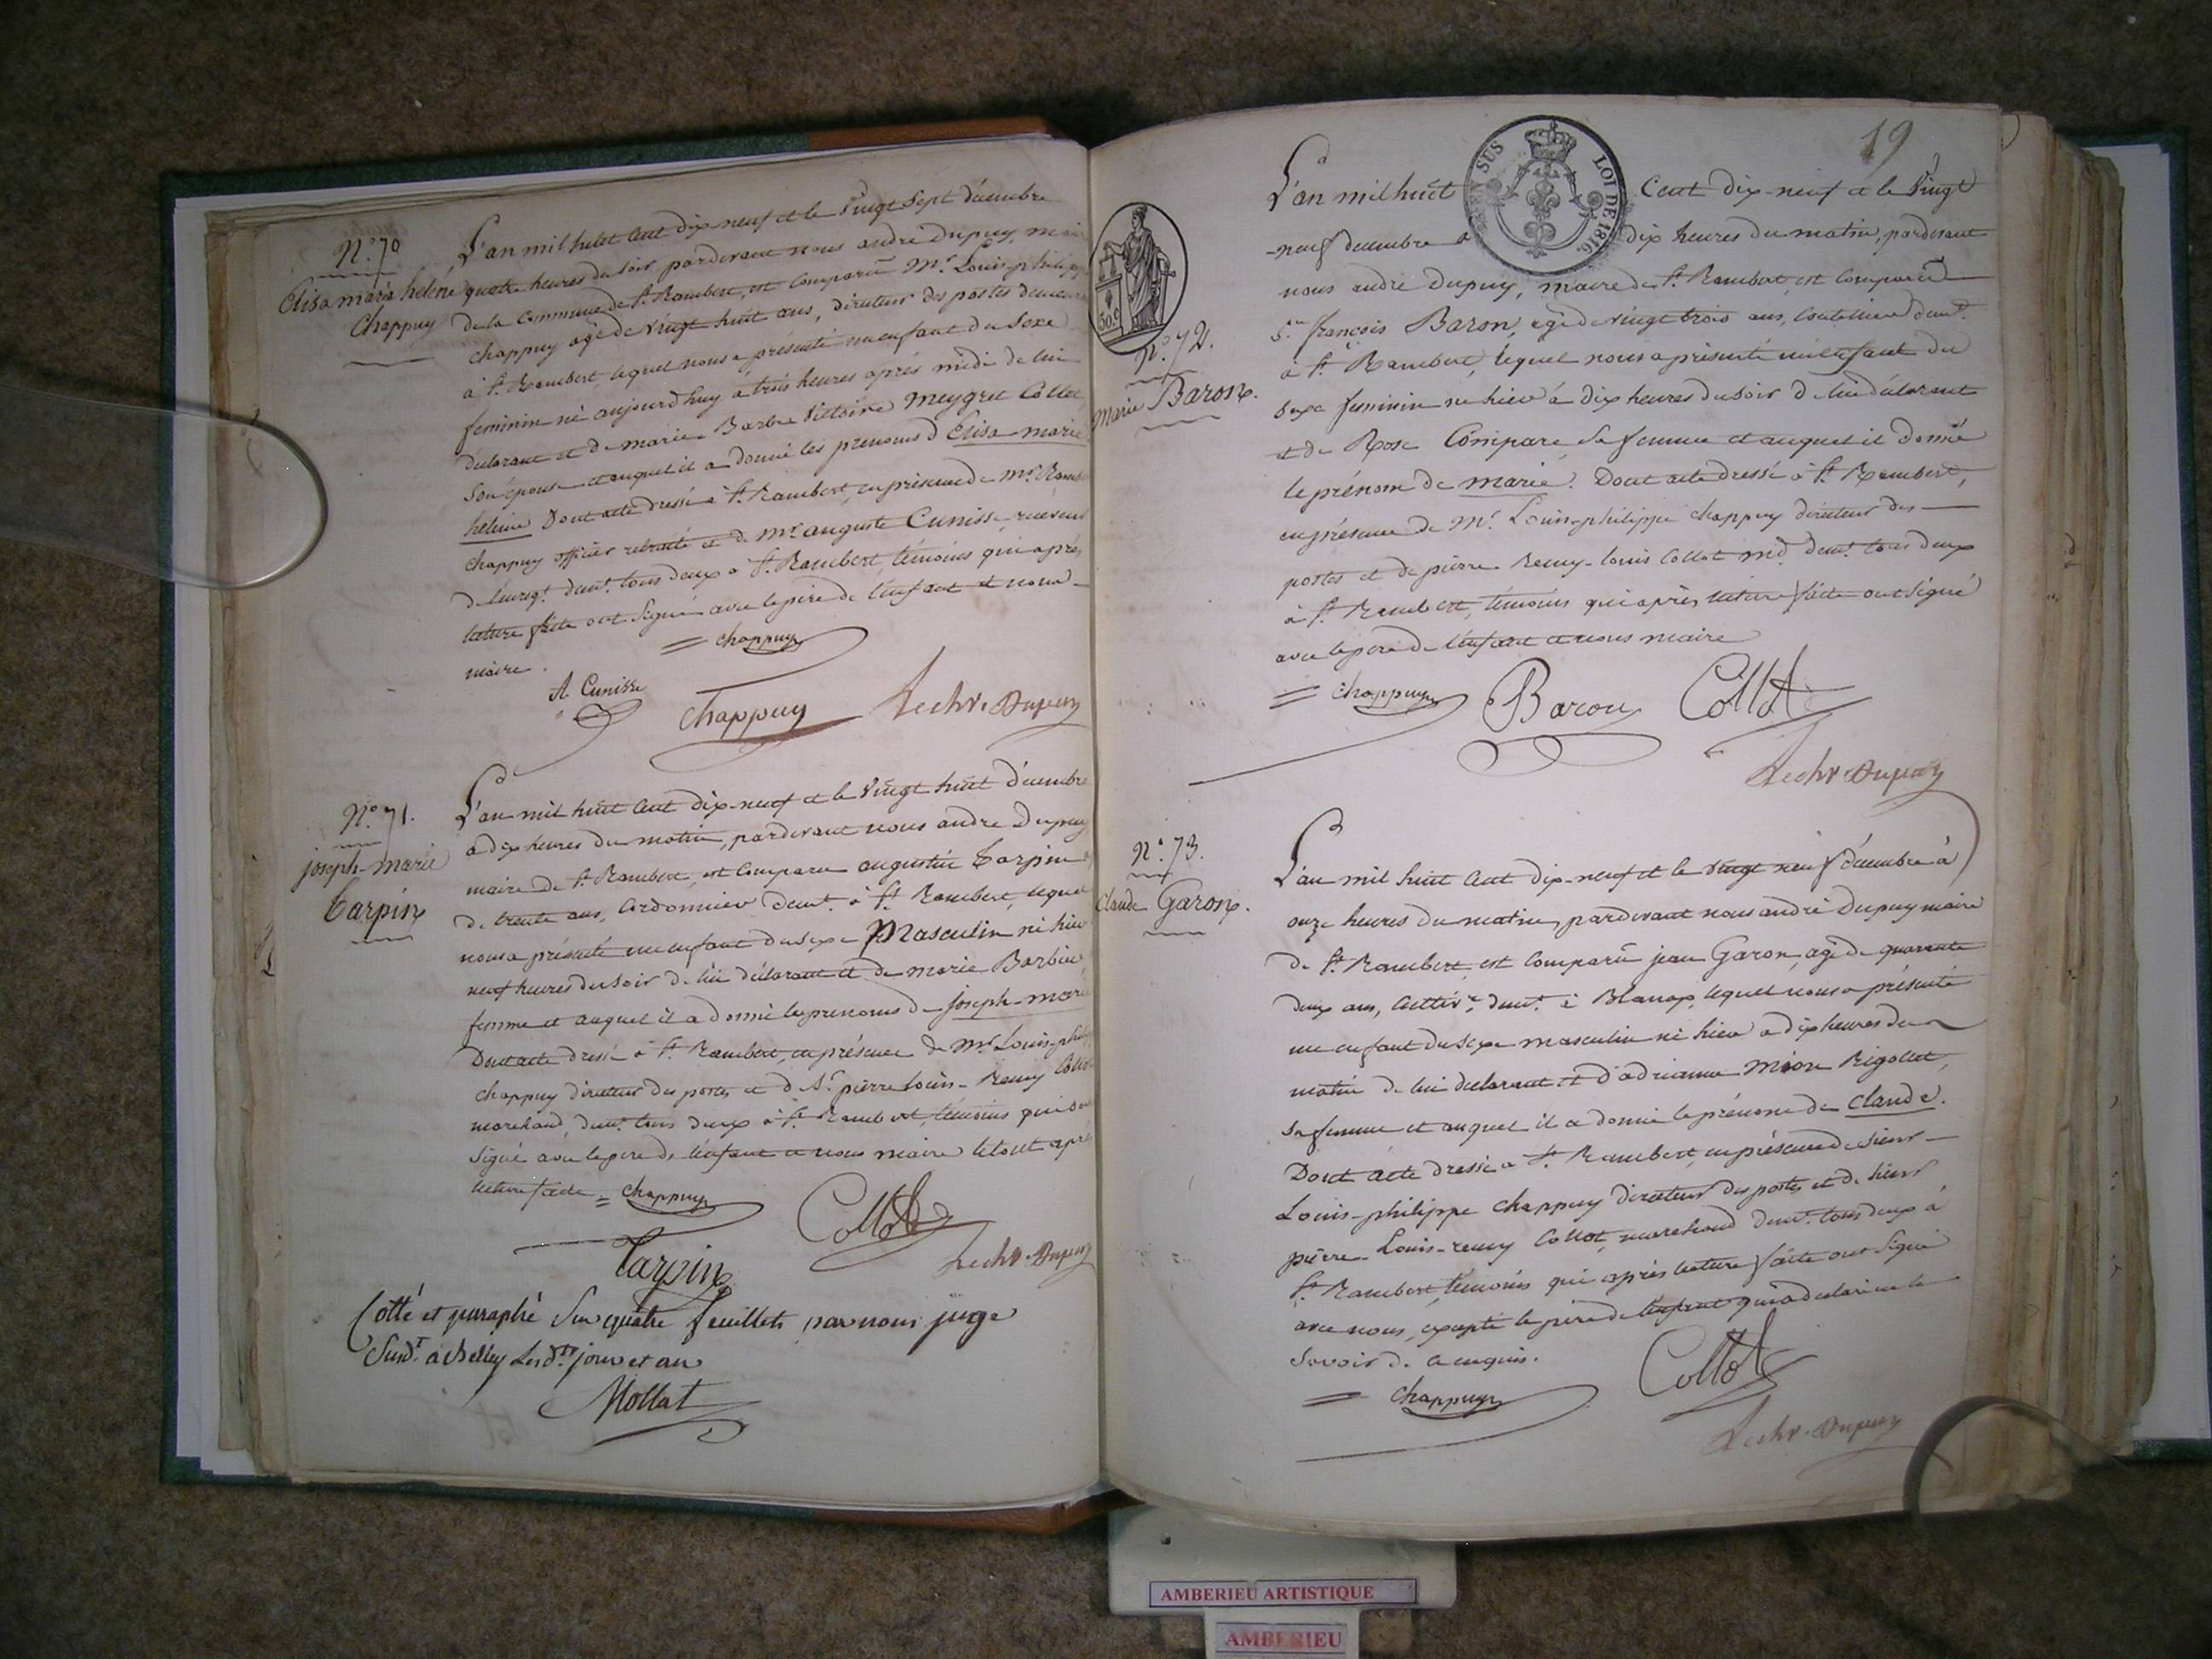 N.º 70
Elisa maria helene
Chappuy
L'an mil huit cent dix-neuf et le Vingt Sept décembre
quatre heures du soir pardevant nous andré Dupuy, mai
de la commune de St. Rambert, est comparu Mr. Louis-philip
chappuy agé de vingt huit ans, directeur des postes demeur
à St. Rambert, lequel nous a présenté un enfant du Sexe
feminin né aujourd'huy a trois heures après midi de lui
déclarant et de marie Barbe Victoire Meygret Collet
Son épouse et auquel il a donné les prenoms d'Elisa-marie
helène Dont acte dressé à St. Rambert, en présence de Mr.
chappuy officier retraité et de Mr. auguste Cunisse, receveur
de l'enregt. demt. tous deux à St. Rambert, témoins qui après
lecture faite ont Signé avec le père de l'enfant et nous
maire.
= chappuy
A. Cunisse
Chappuy
Le chr. Dupuy
N.º 71.
joseph-marie
Tarpin
L'an mil huit cent dix-neuf et le Vingt huit décembre
a dix heures du matin, pardevant nous andré Dupuy
maire de St. Rambert, est comparu augustin Tarpin
de trente ans, Cordonnier demt. à St. Rambert, lequel
nous a présenté un enfant du sexe Masculin né hier
neuf heures du soir de lui déclarant et de marie Barbier
femme et auquel il a donné les prenoms de joseph-marie
Dont acte dressé à St. Rambert, en présence de Mr. Louis-phi
chappuy directeur des postes et de Sr. pierre louis-Remy Collot
marchand, demt. tous deux à St. Rambert, témoins qui ont
Signé avec le père de l'enfant et nous maire le tout après
lecture faite = chappuy
Collot
Tarpin
Le chr. Dupuy
Cotté et paraphé Sur quatre feuillets par nous juge
à Belley Lesdts. jour et an
Mollat
19
LOI DE 1816.
50.c
N.º 72.
Marie Baron.
L'an mil huit Cent dix-neuf et le Vingt
-neuf décembre à dix heures du matin, pardevant
nous andré Dupuy, maire de St. Rambert, est comparu
Sr. françois Baron, agé de vingt trois ans, Coutellier demt.
à St. Rambert, lequel nous a présenté un enfant du
sexe feminin né hier à dix heures du soir de lui déclarant
et de Rose Compare, Sa femme et auquel il donné
le prénom de marie. Dont acte dressé à St. Rambert,
en présence de Mr. Louis-philippe chappuy directeur des
postes et de pierre Remy-louis Collot md. demt. tous deux
à St. Rambert, témoins qui après lecture faite ont signé
avec le père de l'enfant et nous maire
= chappuy
Baron
Collot
Le chr. Dupuy
N.º 73.
Claude Garon.
L'an mil huit cent dix-neuf et le vingt neuf décembre à
onze heures du matin, pardevant nous andré Dupuy maire
de St. Rambert, est comparu jean Garon, agé de quarante
deux ans, cultivr. demt. à Blanaz, lequel nous a présenté
un enfant du Sexe masculin né hier a dix heures du
matin de lui déclarant et d'adrianne Mion Rigollet,
sa femme et auquel il a donné le prénom de Claude.
Dont acte dressé à St. Rambert, en présence de sieur
Louis-philippe chappuy directeur des postes et de sieur
pierre-Louis-remy Collot, marchand demt. tous deux à
St. Rambert, témoins qui après lecture faite ont Signé
avec nous, excepté le père de l'enfant qui a déclaré ne le
Savoir de ce enquis.
= chappuy
Collot
Le chr. Dupuy
AMBERIEU ARTISTIQUE
AMBERIEU